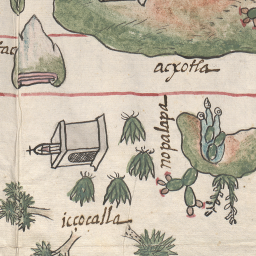 acxotla
nopalapa
icçocalla